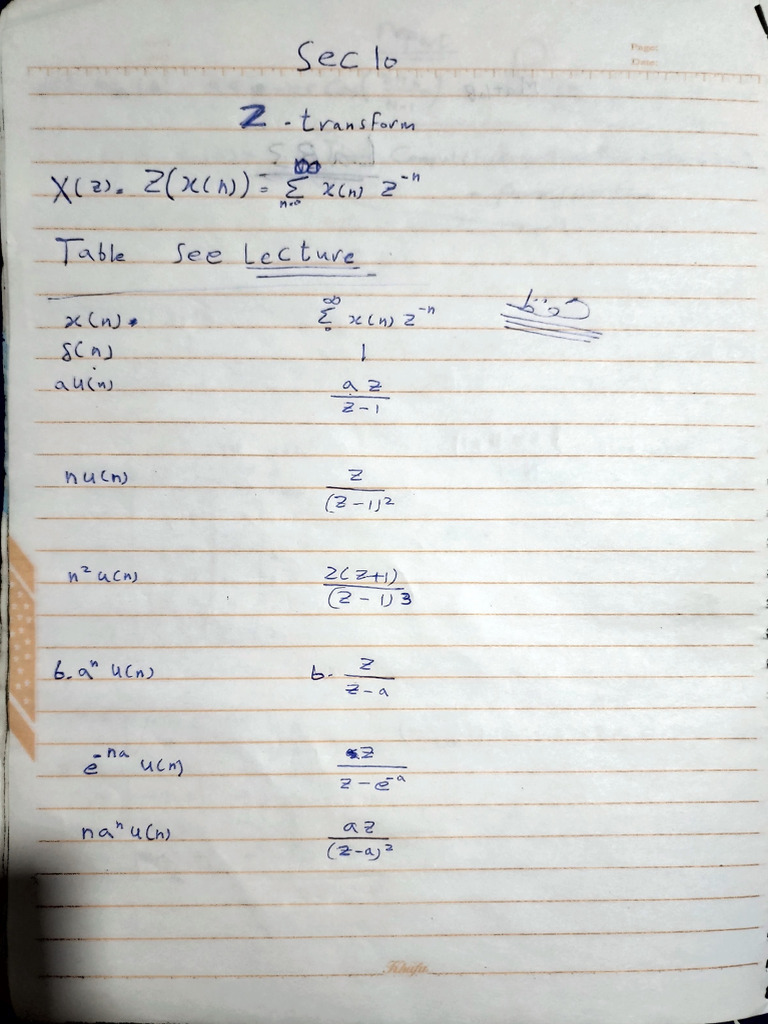 Sec 10
Page:
Date:
Z - transform
X(z) = Z(x(n)) = ∑_{n=0}^{∞} x(n) z^{-n}
Table see Lecture
x(n) ∑_{0}^{∞} x(n) z^{-n}
δ(n) 1
a u(n) \frac{a z}{z-1}
n u(n) \frac{z}{(z-1)^2}
n^2 u(n) \frac{z(z+1)}{(z-1)^3}
b. a^n u(n) b. \frac{z}{z-a}
e^{-na} u(n) \frac{z}{z-e^{-a}}
n a^n u(n) \frac{a z}{(z-a)^2}
Khufu